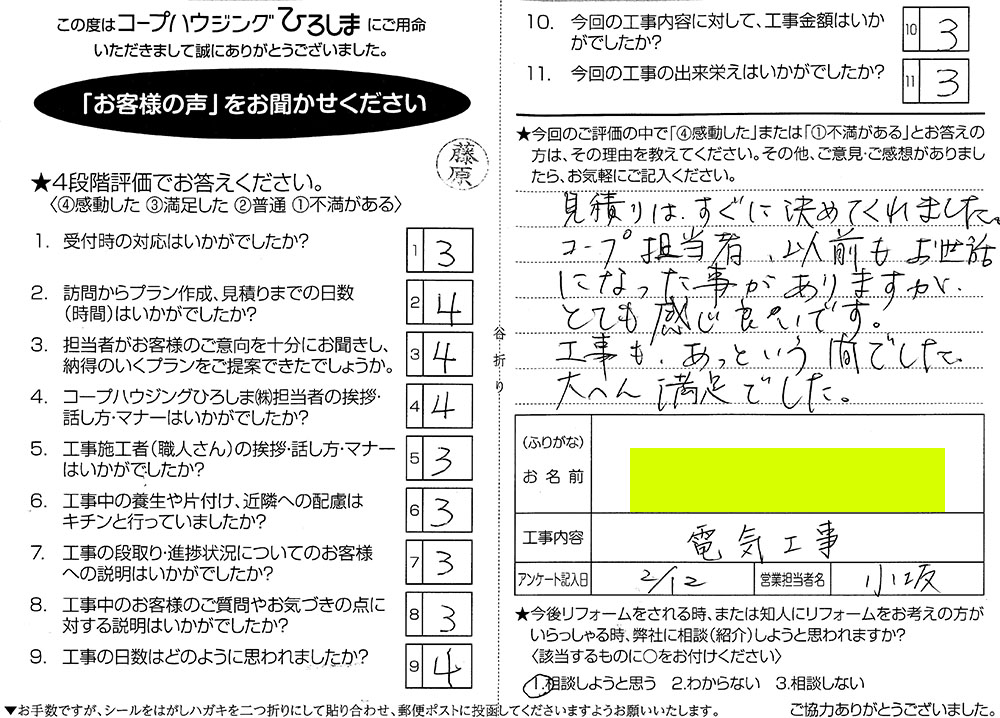 この度はコープハウジングひろしまにご用命
いただきまして誠にありがとうございました。
「お客様の声」をお聞かせください
藤原
★4段階評価でお答えください。
〈④感動した ③満足した ②普通 ①不満がある〉
1. 受付時の対応はいかがでしたか?
1 3
2. 訪問からプラン作成、見積りまでの日数
(時間)はいかがでしたか?
2 4
3. 担当者がお客様のご意向を十分にお聞きし、
納得のいくプランをご提案できたでしょうか。
3 4
4. コープハウジングひろしま㈱担当者の挨拶・
話し方・マナーはいかがでしたか?
4 4
5. 工事施工者(職人さん)の挨拶・話し方・マナー
はいかがでしたか?
5 3
6. 工事中の養生や片付け、近隣への配慮は
キチンと行っていましたか?
6 3
7. 工事の段取り・進捗状況についてのお客様
への説明はいかがでしたか?
7 3
8. 工事中のお客様のご質問やお気づきの点に
対する説明はいかがでしたか?
8 3
9. 工事の日数はどのように思われましたか?
9 4
▼お手数ですが、シールをはがしハガキを二つ折りにして貼り合わせ、郵便ポストに投函してくださいますようお願いいたします。
谷折り
10. 今回の工事内容に対して、工事金額はいか
がでしたか?
10 3
11. 今回の工事の出来栄えはいかがでしたか?
11 3
★今回のご評価の中で「④感動した」または「①不満がある」とお答えの
方は、その理由を教えてください。その他、ご意見・ご感想がありまし
たら、お気軽にご記入ください。
見積りは、すぐに決めてくれました。
コープ担当者、以前もお世話
になった事がありますが、
とても感じ良いです。
工事も、あっという間でしたて、
大へん満足でした。
(ふりがな)
お名前
工事内容 電気工事
アンケート記入日 2/12 営業担当者名 小坂
★今後リフォームをされる時、または知人にリフォームをお考えの方が
いらっしゃる時、弊社に相談(紹介)しようと思われますか?
〈該当するものに○をお付けください〉
1.相談しようと思う 2.わからない 3.相談しない
ご協力ありがとうございました。